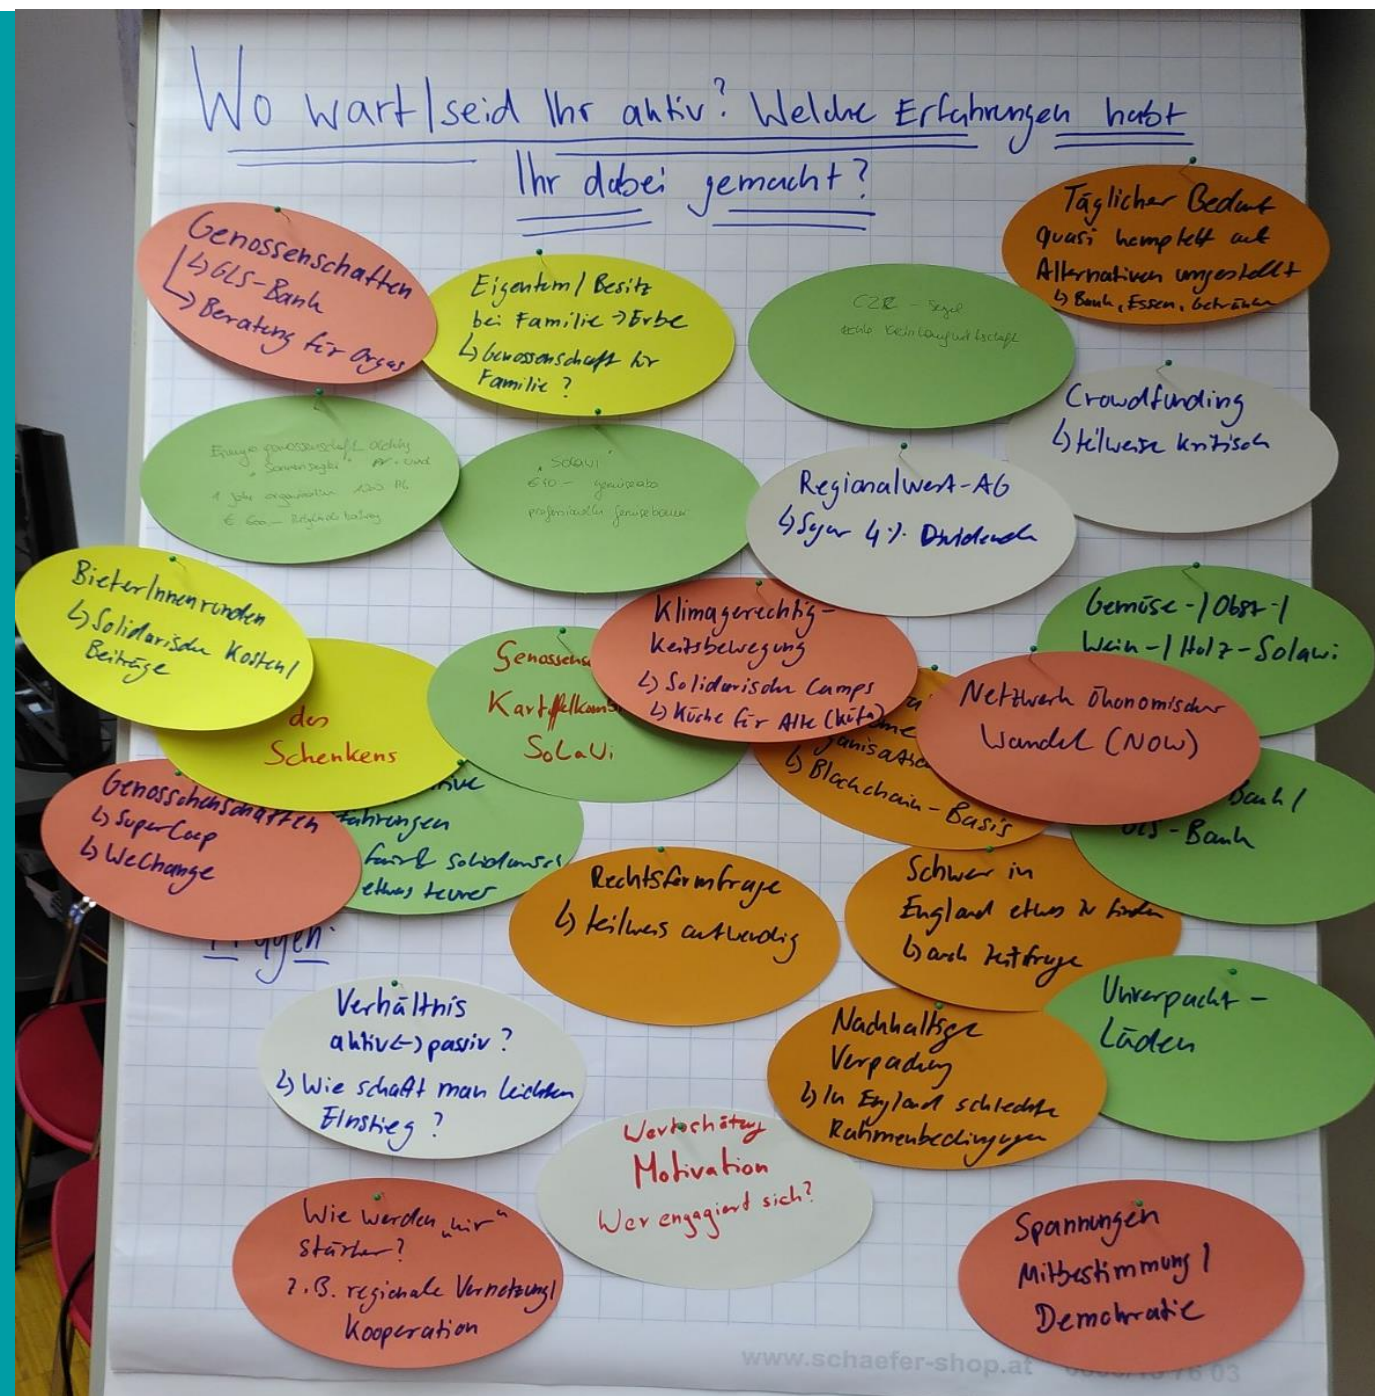 Wo wart/seid Ihr aktiv? Welche Erfahrungen habt
Ihr dabei gemacht?
Genossenschaften
↳ GLS-Bank
↳ Beratung für Orgas
Eigentum / Besitz
bei Familie → Erbe
↳ Genossenschaft für
Familie?
Täglicher Bedarf
quasi komplett auf
Alternativen umgestellt
↳ Bank, Essen, Getränke
Crowdfunding
↳ teilweise kritisch
"Solavi"
Gemüseabo
Regionalwert-AG
↳ Sogar 4% Dividende
BieterInnenrunden
↳ Solidarische Kosten/
Beiträge
des
Schenkens
Genossens
Kartoffelkomb
SoLaVi
Klimagerechtig-
keitsbewegung
↳ Solidarische Camps
↳ Küche für Alle (Küfa)
Gemüse-/Obst-/
Wein-/Holz-Solawi
Netzwerk Ökonomischer
Wandel (NOW)
ganisation
↳ Blockchain-Basis
Bank/
GLS-Bank
Genosschenschaften
↳ SuperCoop
↳ WeChange
ive
fahrungen
fair & solidarisch
etwas teurer
Rechtsformfrage
↳ teilweis aufwendig
Schwer in
England etwas zu finden
↳ auch Zeitfrage
Fragen:
Verhältnis
aktiv ↔ passiv?
↳ Wie schafft man leichten
Einstieg?
Nachhaltige
Verpackung
↳ In England schlechte
Rahmenbedingungen
Unverpackt-
Läden
Wertschätzung
Motivation
Wer engagiert sich?
Wie werden „wir"
stärker?
z.B. regionale Vernetzung/
Kooperation
Spannungen
Mitbestimmung /
Demokratie
www.schaefer-shop.at